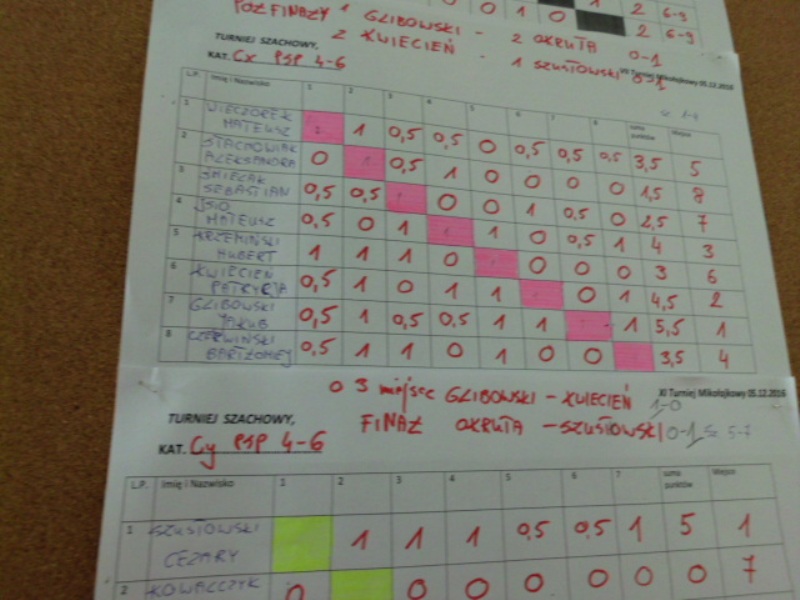 0 0 1 0 1 2 6-9
2 6-9
PÓŁ FINAŁY 1 GLIBOWSKI - 2 OKRUTA 0-1
2 KWIECIEŃ - 1 SZUSTOWSKI 0-1
TURNIEJ SZACHOWY,
KAT. Cx PSP 4-6
Turniej Mikołajkowy 05.12.2016
L.P. Imię i Nazwisko 1 2 3 4 5 6 7 8 suma punktów Miejsce
1 WIECZOREK MATEUSZ 1 0,5 0,5 0 0,5 0,5 0,5 3,5 5
2 STACHOWIAK ALEKSANDRA 0 0,5 1 0 0 0 0 1,5 8
3 ŚMIEŁAK SEBASTIAN 0,5 0,5 0 0 1 0,5 0 2,5 7
4 MATEUSZ 0,5 0 1 1 0 0,5 1 4 3
5 KRZEMIŃSKI HUBERT 1 1 1 0 0 0 0 3 6
6 KWIECIEŃ PATRYCJA 0,5 1 0 1 1 0 1 4,5 2
7 GLIBOWSKI JAKUB 0,5 1 0,5 0,5 1 1 1 5,5 1
8 CZERWIŃSKI BARTŁOMIEJ 0,5 1 1 0 1 0 0 3,5 4
O 3 miejsc GLIBOWSKI - KWIECIEŃ 1-0
XI Turniej Mikołajkowy 05.12.2016
TURNIEJ SZACHOWY,
FINAŁ OKRUTA - SZUSTOWSKI 0-1 5-7
KAT. Cy PSP 4-6
L.P. Imię i Nazwisko 1 2 3 4 5 6 7 suma punktów Miejsce
1 SZUSTOWSKI CEZARY 1 1 1 0,5 0,5 1 5 1
2 KOWALCZYK 0 0 0 0 0 0 0 7